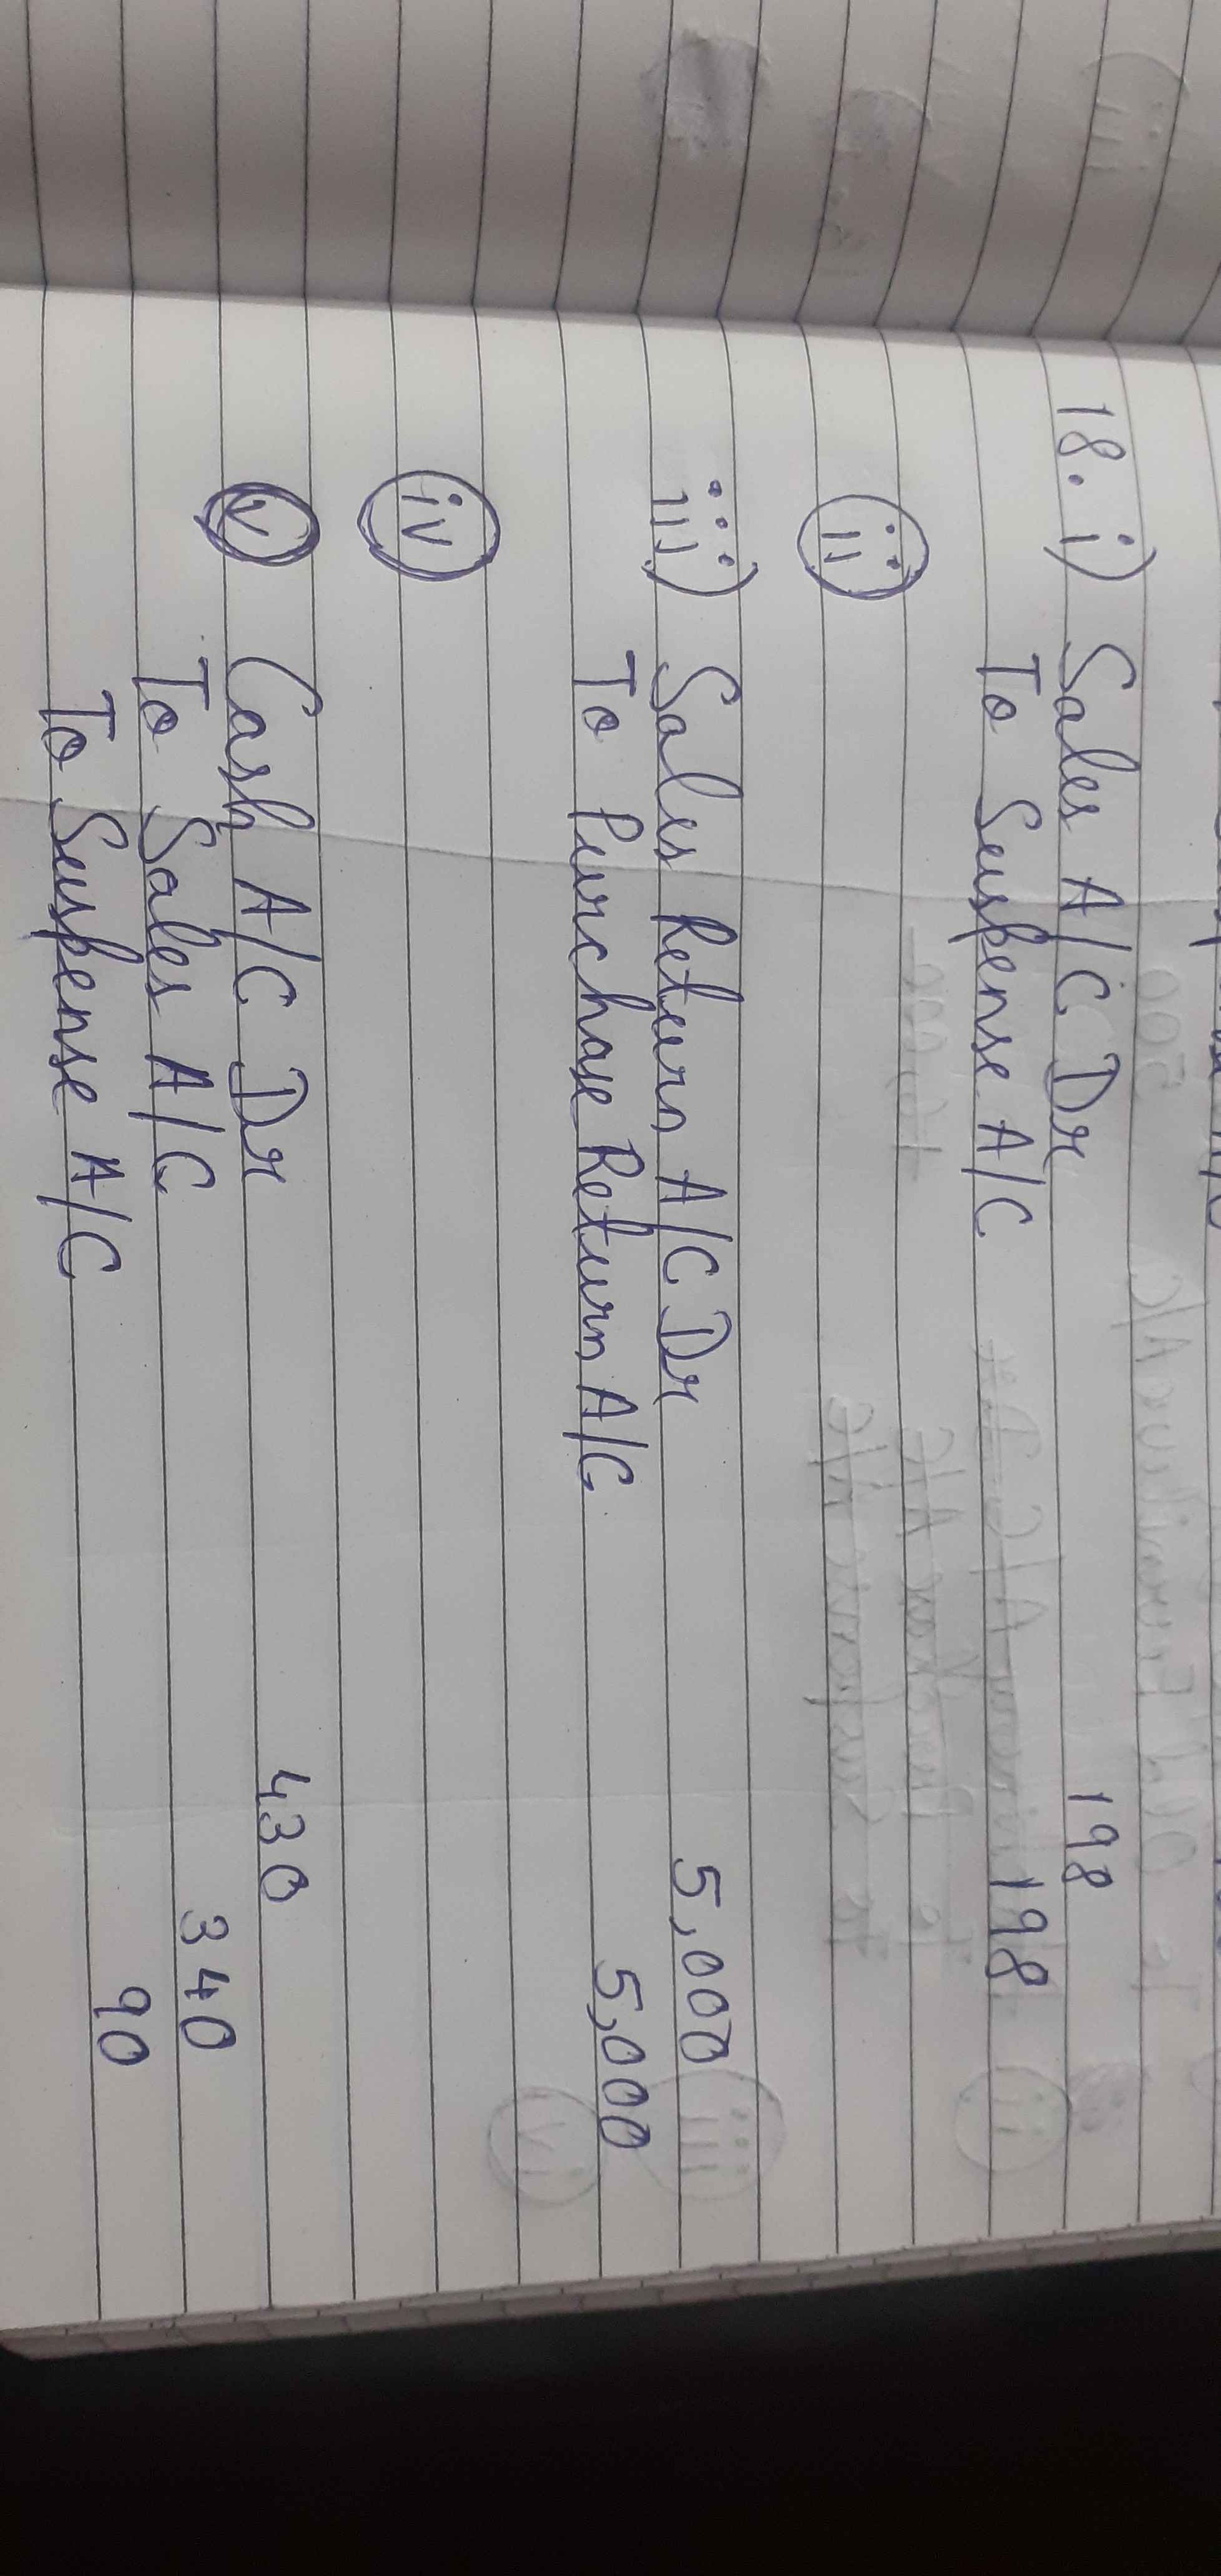 18. i) Sales A/C Dr 198
To Suspense A/C 198
ii
iii) Sales Return A/C Dr 5,000
To Purchase Return A/C 5,000
iv
v Cash A/C Dr 430
To Sales A/C 340
To Suspense A/C 90